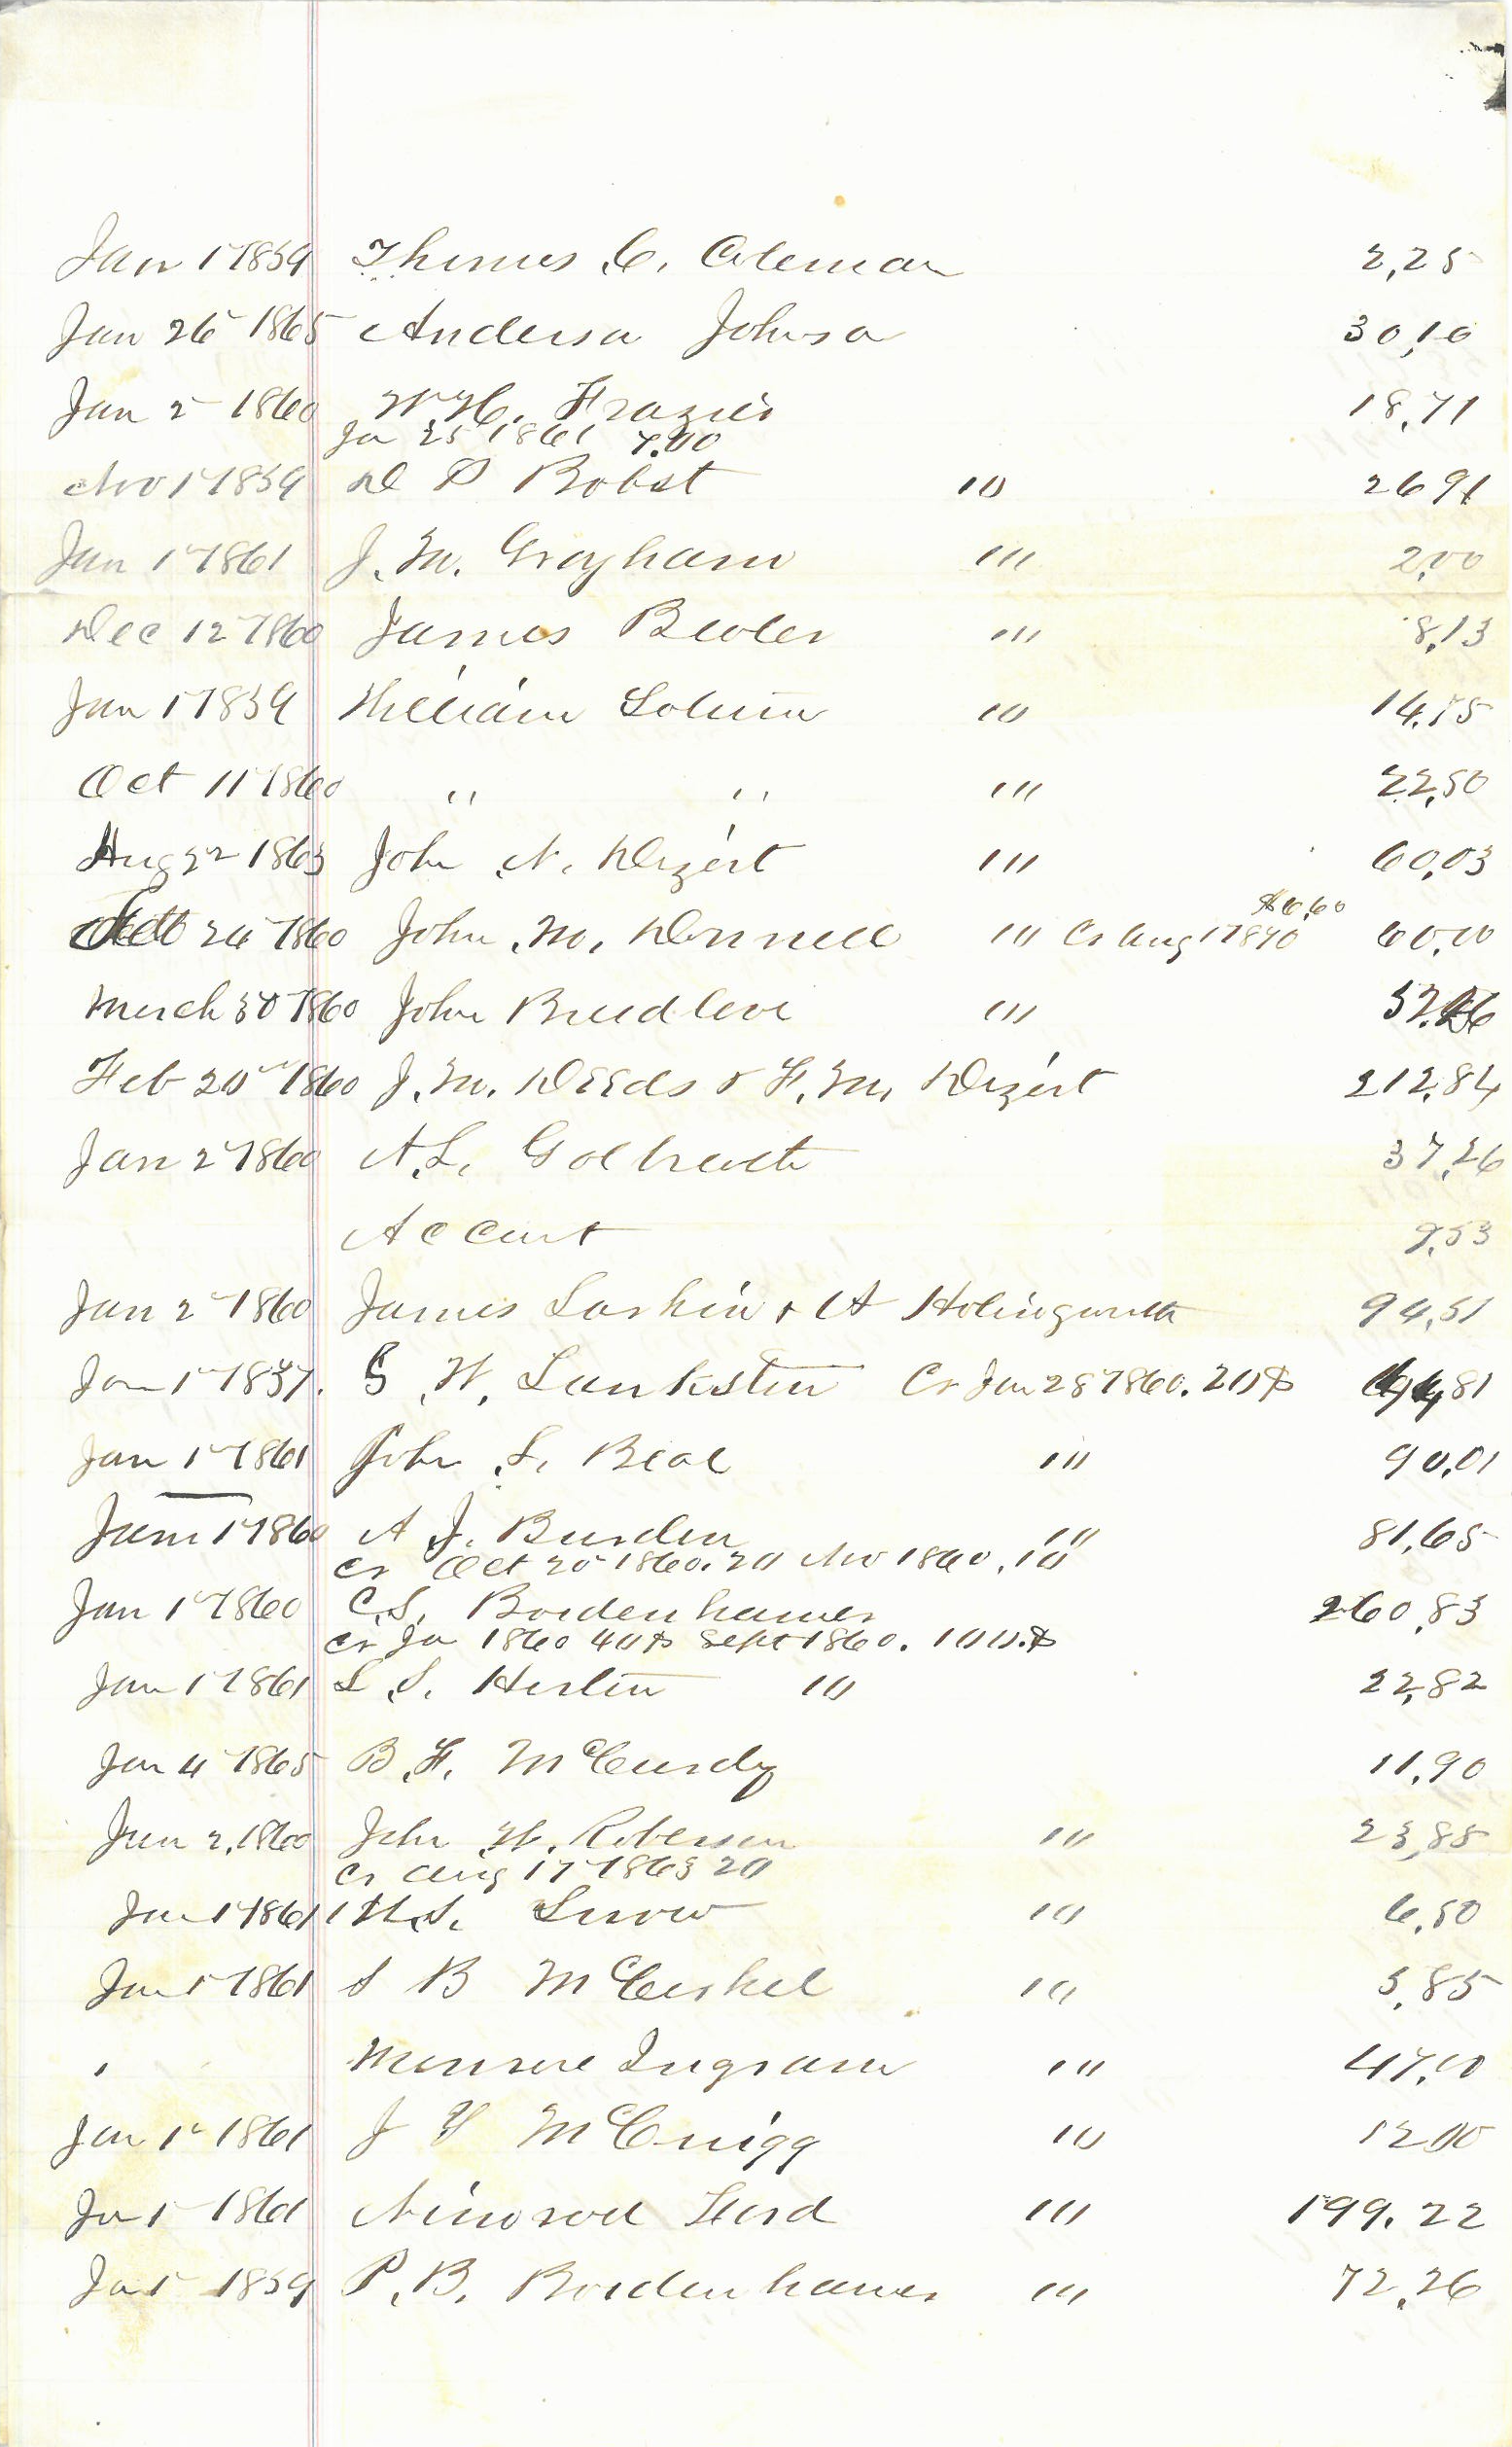 Jan 1 1859 Thomas C. Coleman 2,25
Jan 26 1865 Anderson Johnson 30,10
Jan 2 1860 W. H. Frazier 18,71
Ja 25 1861 7.00
Nov 1 1859 D P Bobst " 26 91
Jan 1 1861 J. M. Grayham " 2,00
Dec 12 1860 James Beeler " 8,13
Jan 1 1859 William " 14,75
Oct 11 1860 " " " 22,50
Aug 22 1863 John N. Dizert " 60,03
24 1860 John M. Donnell " Cr Aug 1 $6,60 60,00
March 30 1860 John Breedlove "
Feb 20 1860 J. M. Deeds & F. M. Dizert 212,84
Jan 2 1860 A. L. Golbreath 37,26
Account 9,53
Jan 2 1860 James Larkin & A Holingworth 94,51
Jan 1 1857. S. W. Lankster Cr Jan 28 1860. 20$ 81
Jan 1 1861 John S. Beal " 90,01
Jan 1 1860 A J. Burden " 81,65
Cr Oct 20 1860. 20 Nov 1860, 10
Jan 1 1860 C. S. Bordenhamer 260,83
Cr Ja 1860 40$ Sept 1860. 100.$
Jan 1 1861 L S. Herlin " 22,82
Jan 4 1865 B. F. McCurdy 11,90
Jan 2, 1860 John W. Roberson " 23,88
Cr Aug 17 1863 20
Jan 1 1861 W. S. Snow " 6,50
Jan 1 1861 S B McCuskel " 5,85
" Monroe Ingram " 47,00
Jan 1 1861 J Y McCrigg " 12 00
Ja 1 1861 Nimrod Ford " 199.22
Ja 1 1859 P. B. Bordenhamer " 72,26